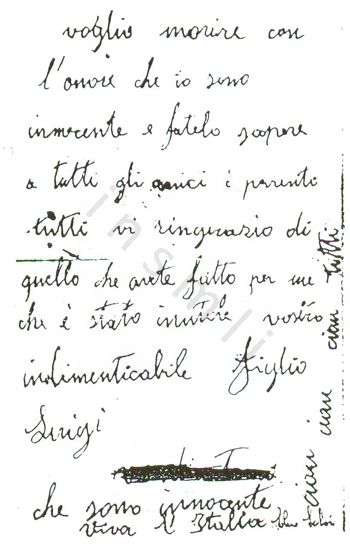 voglio morire con
l'onore che io sono
innocente e fatelo sapere
a tutti gli amici i parenti
tutti vi ringrazio di
quello che avete fatto per me
che è stato inutile vostro
indimenticabile figlio
Luigi
che sono innocente
viva l'Italia
ciao ciao ciao tutti
insmli